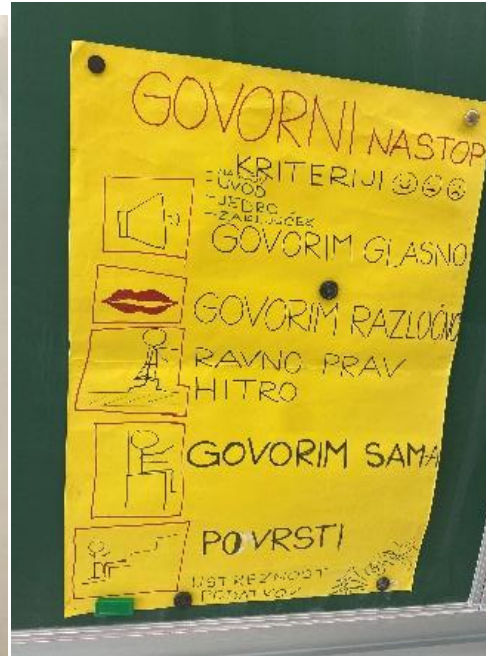 GOVORNI NASTOP
KRITERIJI
- UVOD
- JEDRO
- ZAKLJUČEK
GOVORIM GLASNO
GOVORIM RAZLOČNO
RAVNO PRAV
HITRO
GOVORIM SAMA
PO VRSTI
USTREZNOST
PODATKOV